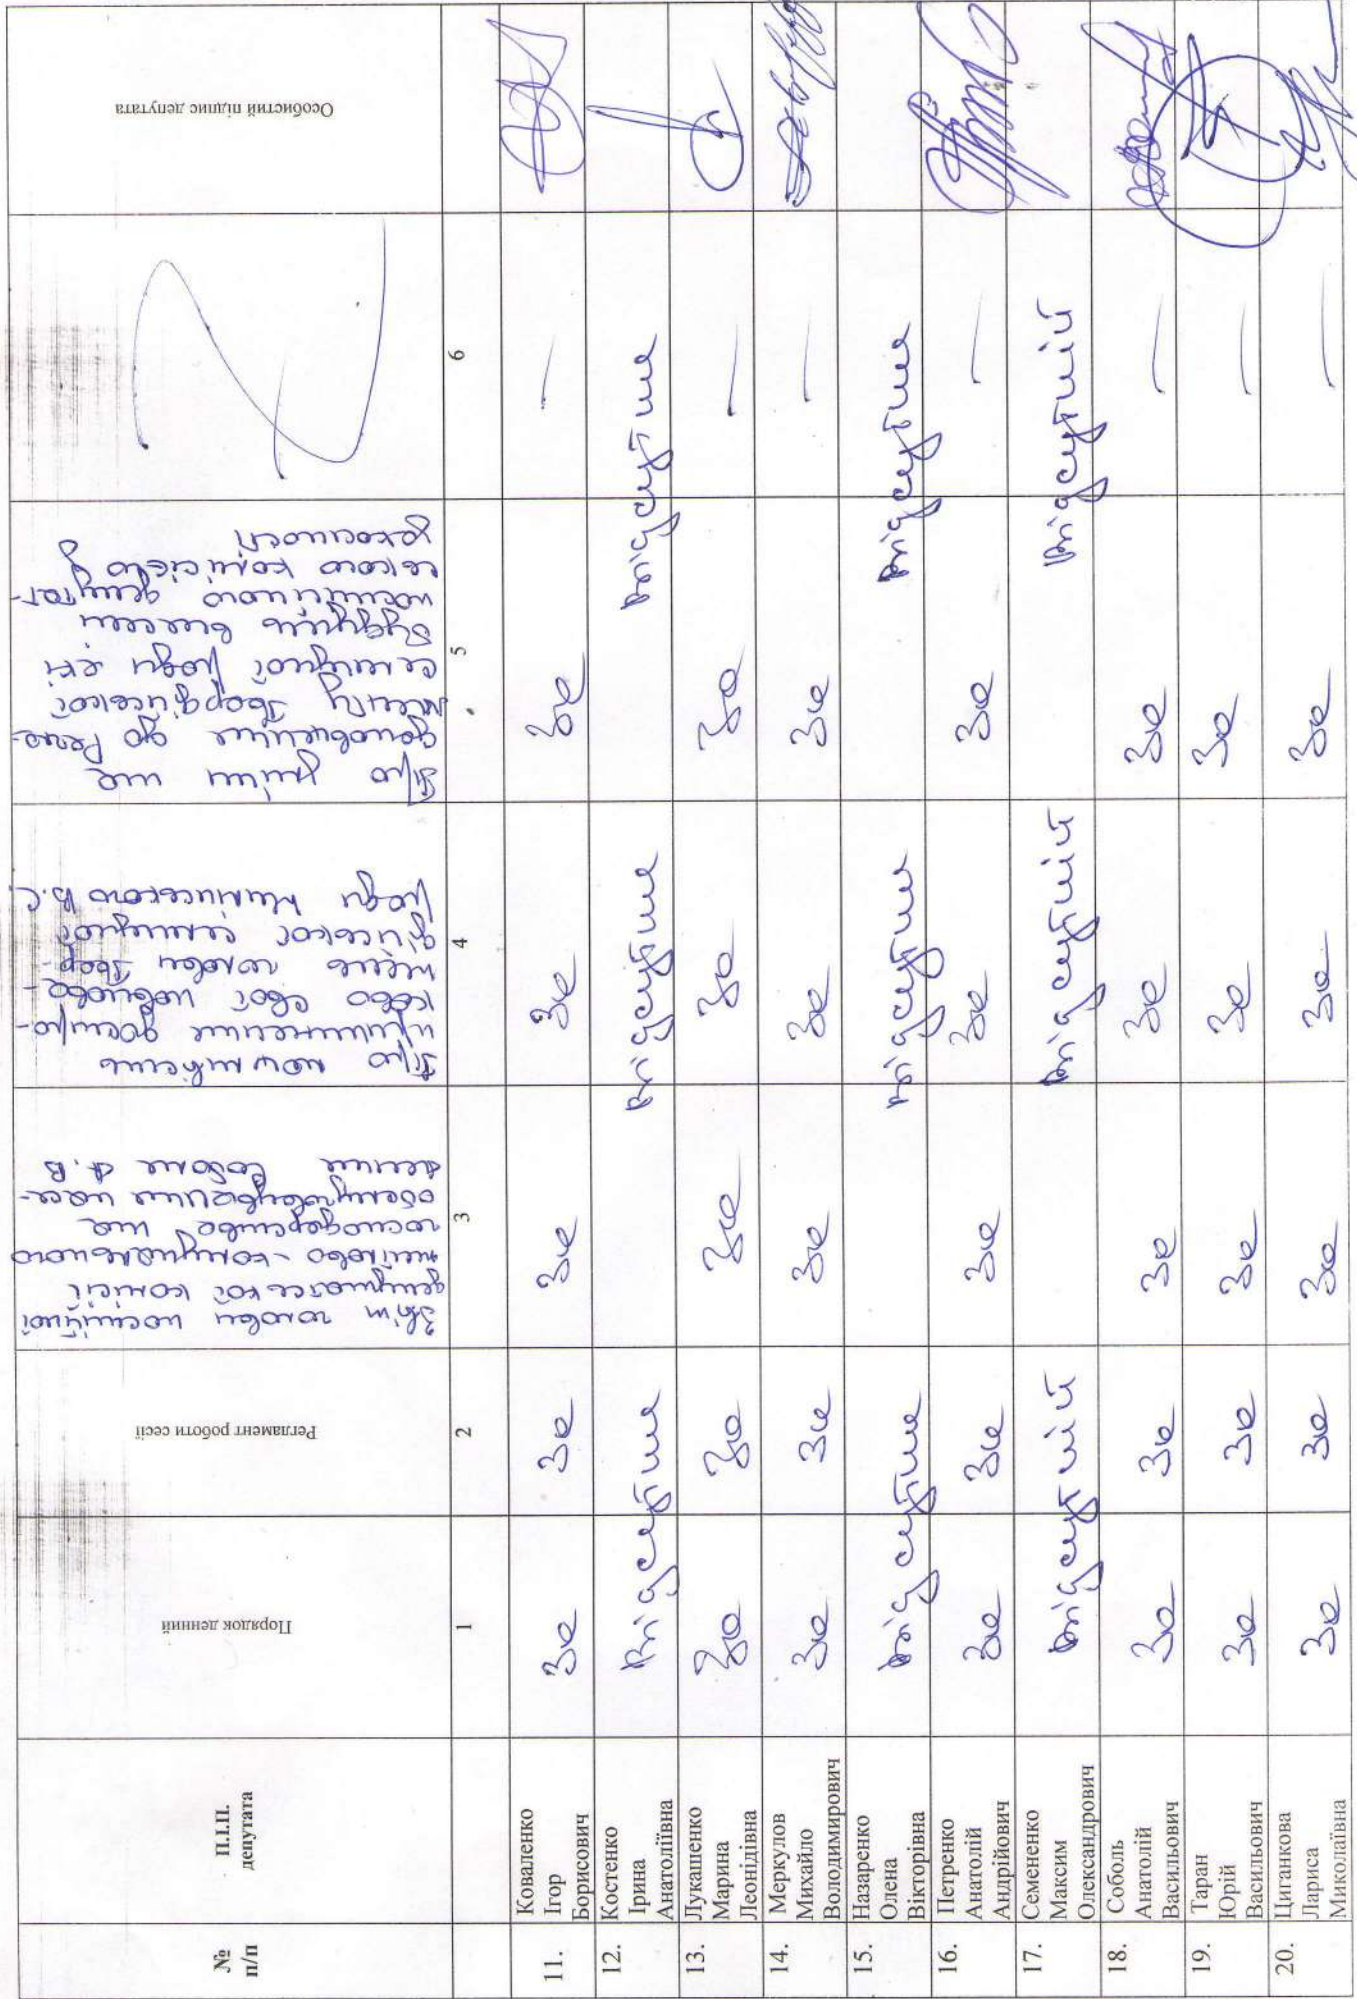 № п/п
П.І.П. депутата
Порядок денний
Регламент роботи сесії
Звіт голови постійної
депутатської комісії
житлово-комунального
господарства та
обслуговування насе-
лення Соболя А.В
Про
достро-
ково свої повноваже-
голови Згор-
ської селищної
ради
Про зміни та
доповнення до Регла-
менту
селищної ради
внесені
постійною депутат-
ською комісією
Особистий підпис депутата
1 2 3 4 5 6
11. Коваленко Ігор Борисович За За За За За —
12. Костенко Ірина Анатоліївна Відсутня Відсутня Відсутня Відсутня
13. Лукашенко Марина Леонідівна За За За За За —
14. Меркулов Михайло Володимирович За За За За За —
15. Назаренко Олена Вікторівна Відсутня Відсутня Відсутня
16. Петренко Анатолій Андрійович За За За За За —
17. Семененко Максим Олександрович Відсутній Відсутній Відсутній
18. Соболь Анатолій Васильович За За За За За —
19. Таран Юрій Васильович За За За За За —
20. Циганкова Лариса Миколаївна За За За За За —